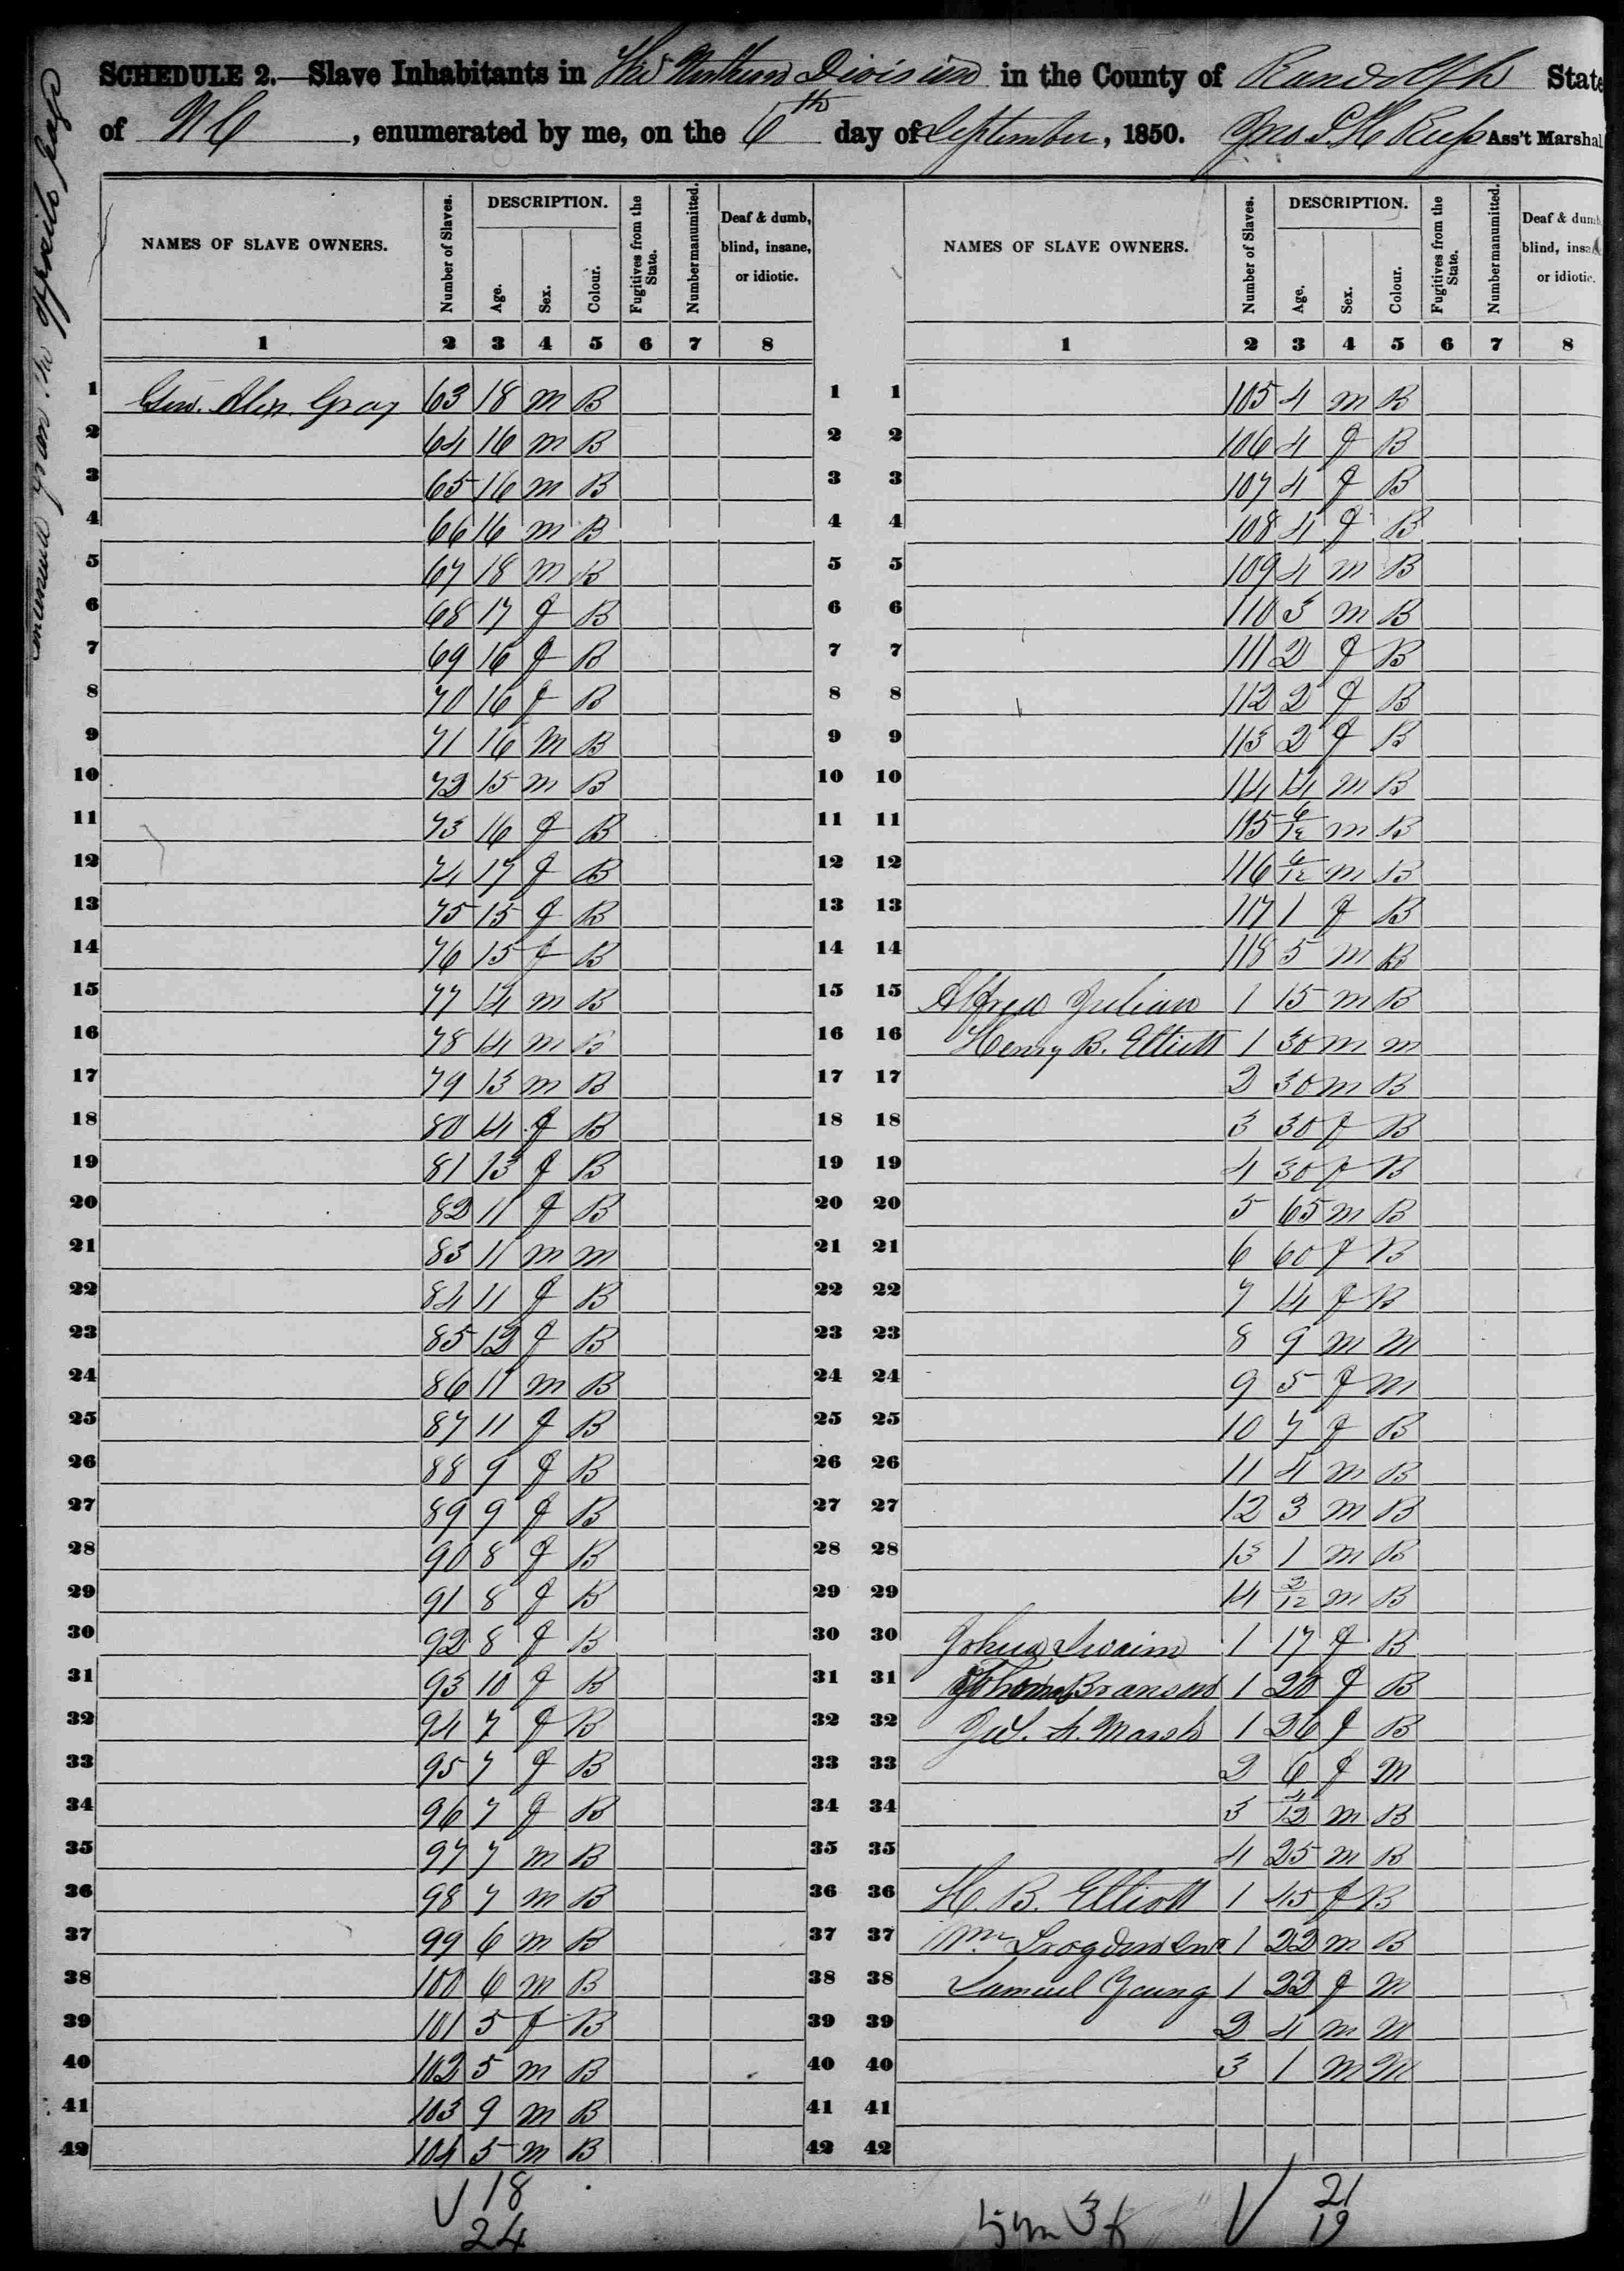 SCHEDULE 2.—Slave Inhabitants in The Northern Division in the County of Randolph State
of NC, enumerated by me, on the 6th day of September, 1850. Ass't Marshal
from the opposite page
NAMES OF SLAVE OWNERS. Number of Slaves. DESCRIPTION. Age. Sex. Colour. Fugitives from the State. Number manumitted. Deaf & dumb, blind, insane, or idiotic.
1 2 3 4 5 6 7 8
1 Gen. Alex. Gray 63 18 m B 1
2 64 16 m B 2
3 65 16 m B 3
4 66 16 m B 4
5 67 18 m B 5
6 68 17 f B 6
7 69 16 f B 7
8 70 16 f B 8
9 71 16 m B 9
10 72 15 m B 10
11 73 16 f B 11
12 74 17 f B 12
13 75 15 f B 13
14 76 15 f B 14
15 77 14 m B 15
16 78 14 m B 16
17 79 13 m B 17
18 80 14 f B 18
19 81 13 f B 19
20 82 11 f B 20
21 83 11 m m 21
22 84 11 f B 22
23 85 12 f B 23
24 86 11 m B 24
25 87 11 f B 25
26 88 9 f B 26
27 89 9 f B 27
28 90 8 f B 28
29 91 8 f B 29
30 92 8 f B 30
31 93 10 f B 31
32 94 7 f B 32
33 95 7 f B 33
34 96 7 f B 34
35 97 7 m B 35
36 98 7 m B 36
37 99 6 m B 37
38 100 6 m B 38
39 101 5 f B 39
40 102 5 m B 40
41 103 9 m B 41
42 104 5 m B 42
18
24
NAMES OF SLAVE OWNERS. Number of Slaves. DESCRIPTION. Age. Sex. Colour. Fugitives from the State. Number manumitted. Deaf & dumb, blind, insane, or idiotic.
1 2 3 4 5 6 7 8
1 105 4 m B
2 106 4 f B
3 107 4 f B
4 108 4 f B
5 109 4 m B
6 110 3 m B
7 111 2 f B
8 112 2 f B
9 113 2 f B
10 114 14 m B
11 115 6/12 m B
12 116 6/12 m B
13 117 1 f B
14 118 5 m B
15 Alfred Julian 1 15 m B
16 Henry B. Elliott 1 30 m m
17 2 30 m B
18 3 30 f B
19 4 30 f B
20 5 65 m B
21 6 60 f B
22 7 14 f B
23 8 9 m m
24 9 5 f m
25 10 7 f B
26 11 4 m B
27 12 3 m B
28 13 1 m B
29 14 2/12 m B
30 Joshua Swaim 1 17 f B
31 Branson 1 20 f B
32 A. Marsh 1 26 f B
33 2 6 f m
34 3 4/12 m B
35 4 25 m B
36 H. B. Elliott 1 45 f B
37 1 22 m B
38 Samuel Young 1 22 f m
39 2 4 m m
40 3 1 m m
41
42
5 m 3 f
21
19